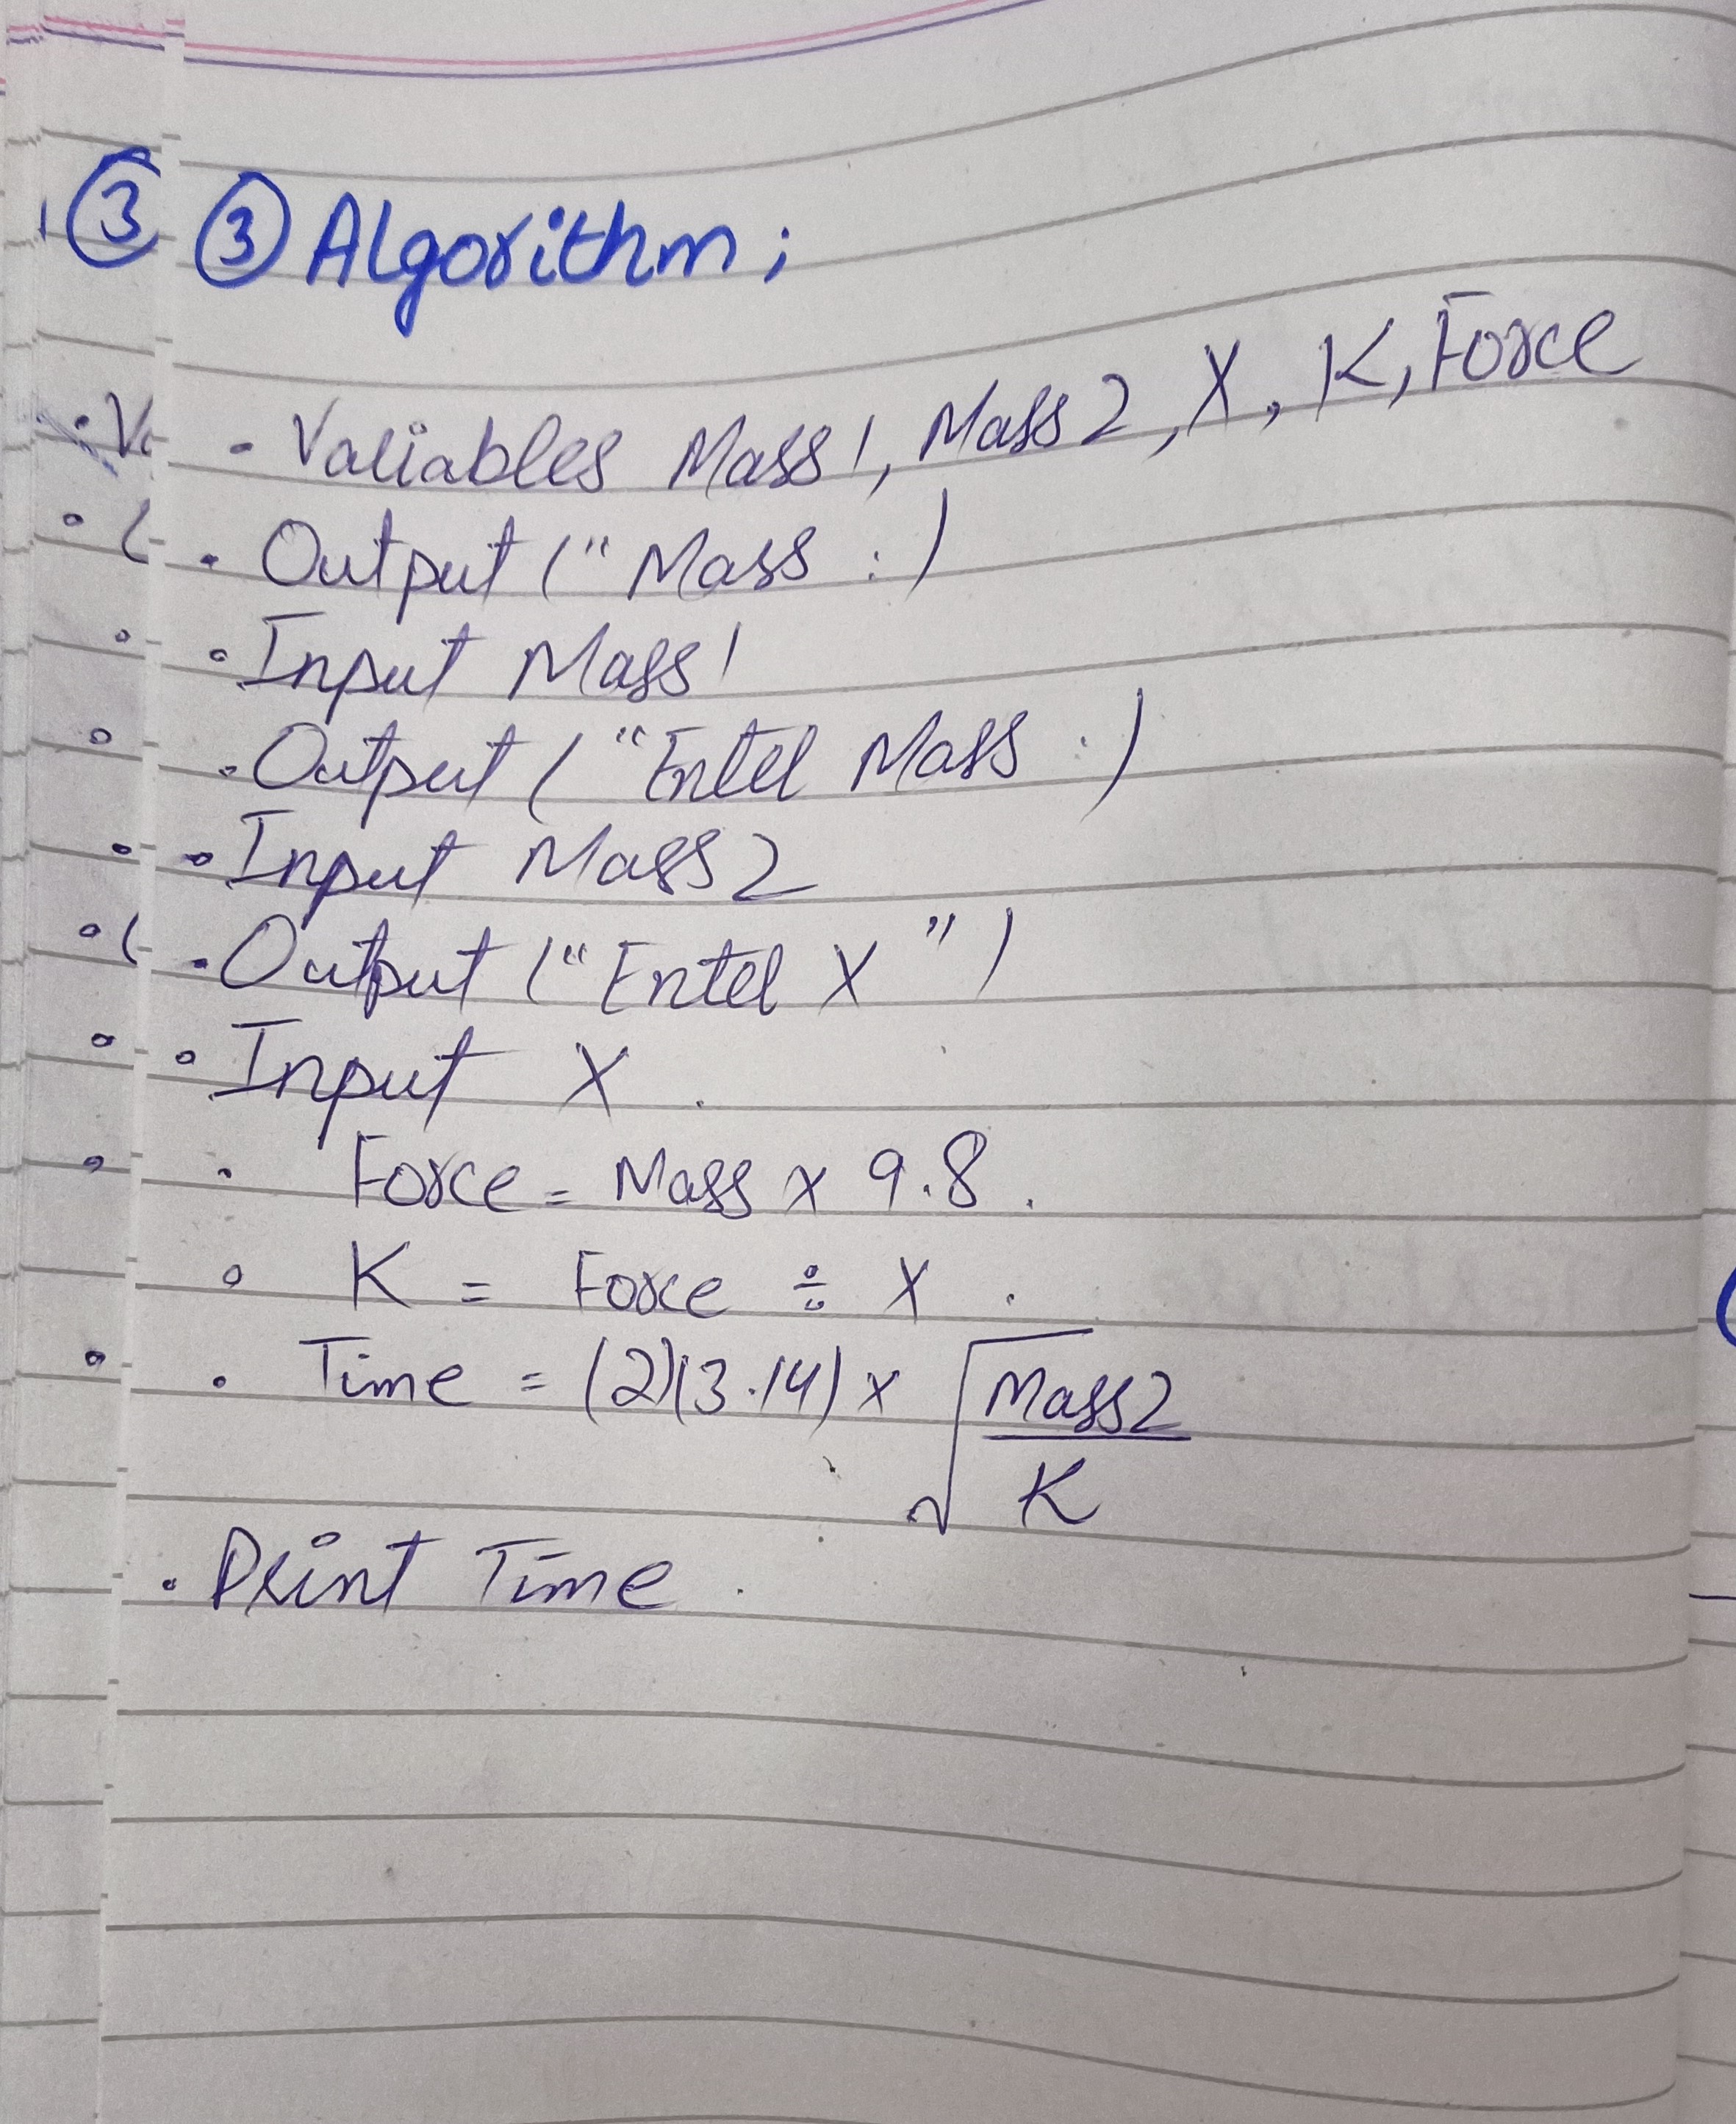 ③ ③ Algorithm;
- Variables Mass1, Mass2, X, K, Force
. Output ("Mass :)
. Input Mass1
. Output ("Enter Mass :)
. Input Mass2
. Output ("Enter X")
. Input X.
. Force = Mass x 9.8.
. K = Force ÷ X.
. Time = (2)(3.14) x √Mass2
K
. Print Time.